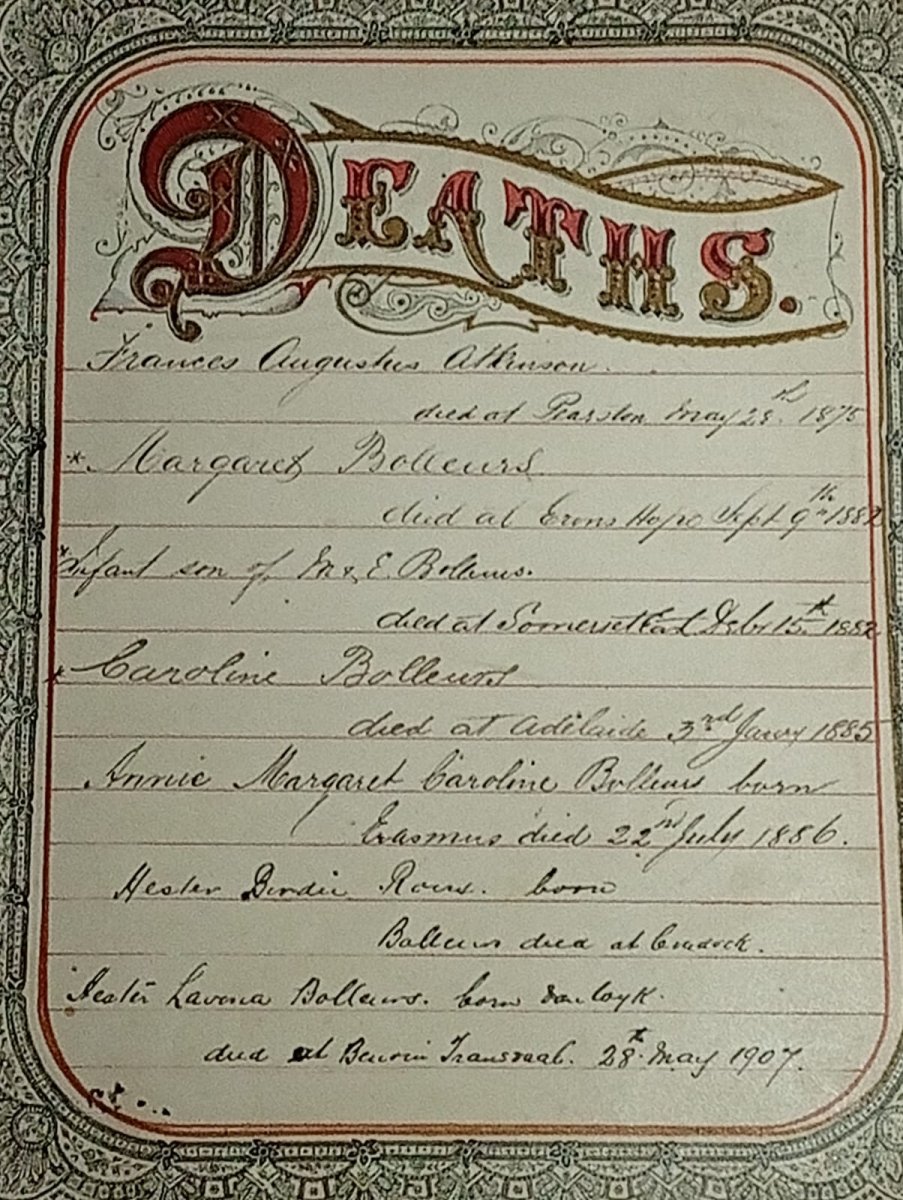 DEATHS.
Frances Augustus Atkinson.
died at Pearston May 28th 1875
* Margaret Bolleurs
died at Erins Hope Sept 9th 1882
* Infant son of M & E. Bolleurs.
died at Somerset East Debr 15th 1882
* Caroline Bolleurs
died at Adelaide 3rd Jany 1885
Annie Margaret Caroline Bolleurs born
Erasmus died 22nd July 1886.
Hester Birdie born
Bolleurs died at Cradock.
Hester Lavina Bolleurs. born
died at Benoni Transvaal. 28th May 1907.